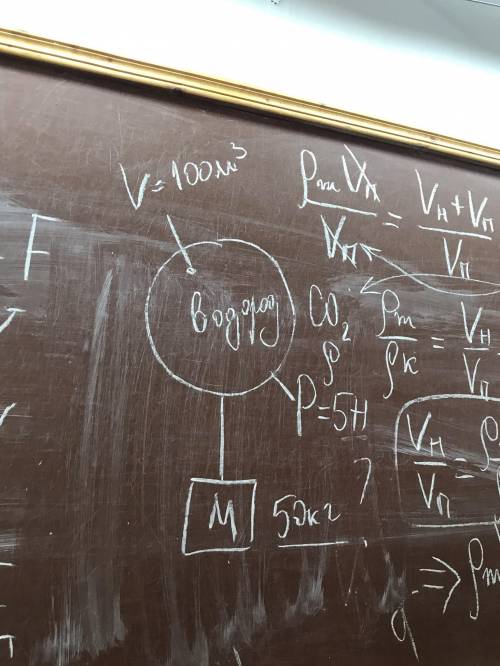 V=100м³
водород
CO₂
ρ
P=5Н
М
50кг
?
ρт Vп / Vп = Vн + Vп / Vп
ρт / ρк = Vн / Vп
Vн / Vп = ρ
=> ρт
F